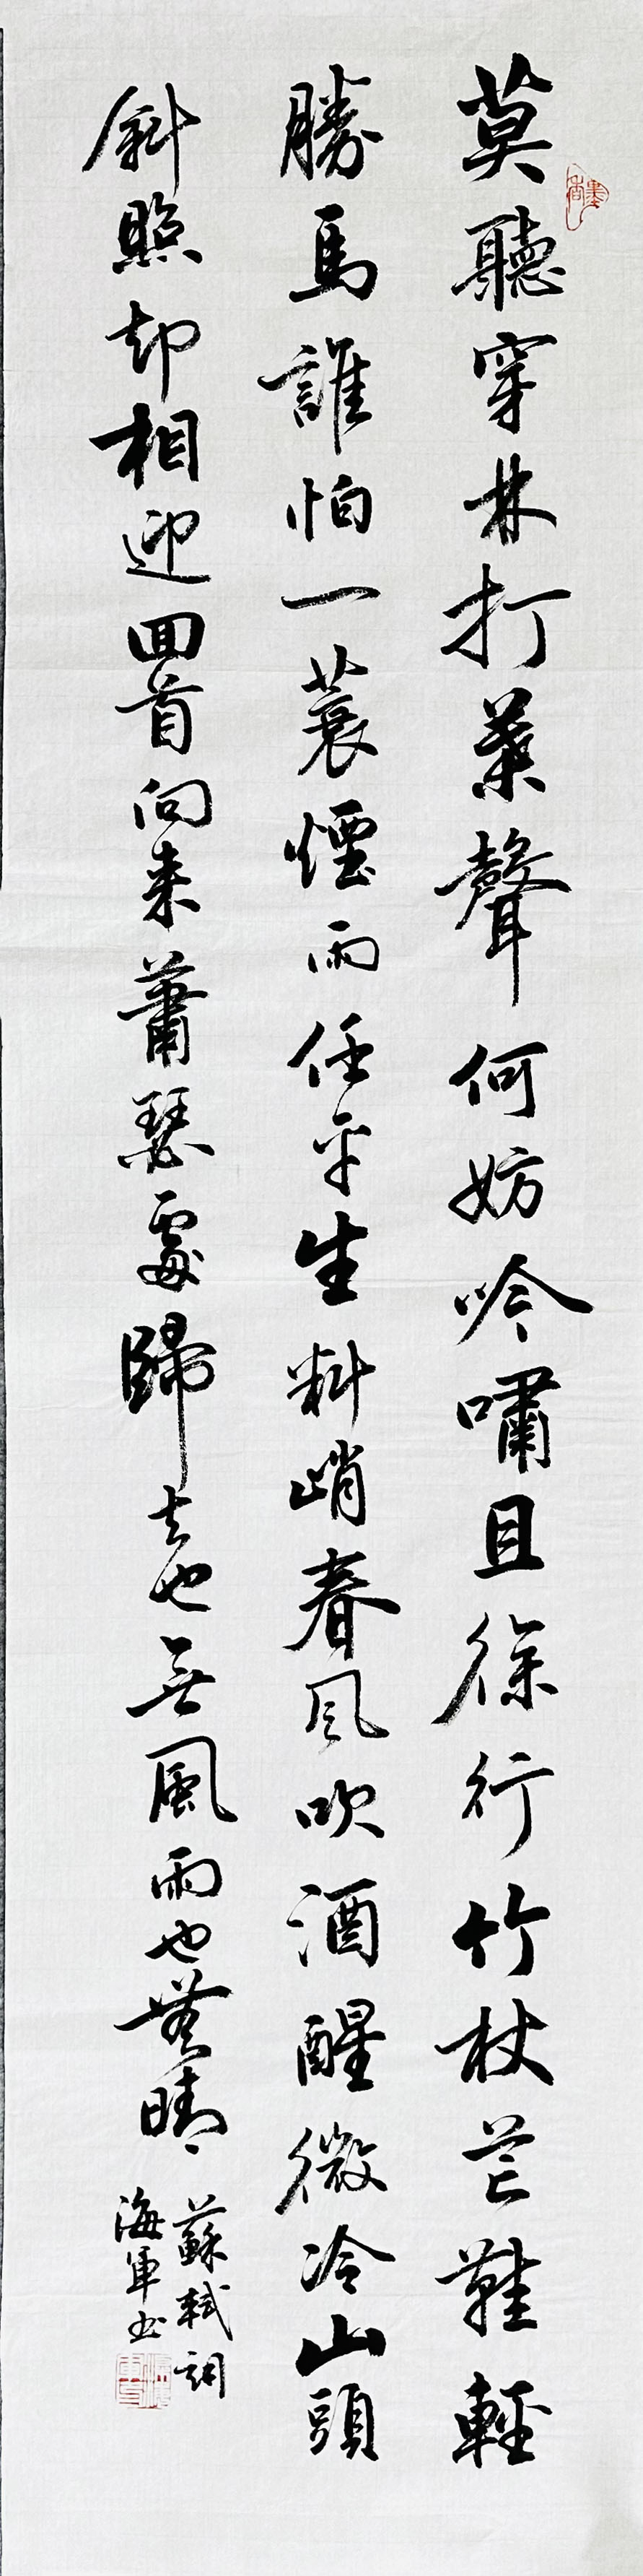 莫聽穿林打葉聲何妨吟嘯且徐行竹杖芒鞋輕
勝馬誰怕一蓑煙雨任平生料峭春风吹酒醒微冷山頭
斜照却相迎回首向来蕭瑟處歸去也无風雨也無晴
蘇軾詞
海軍书